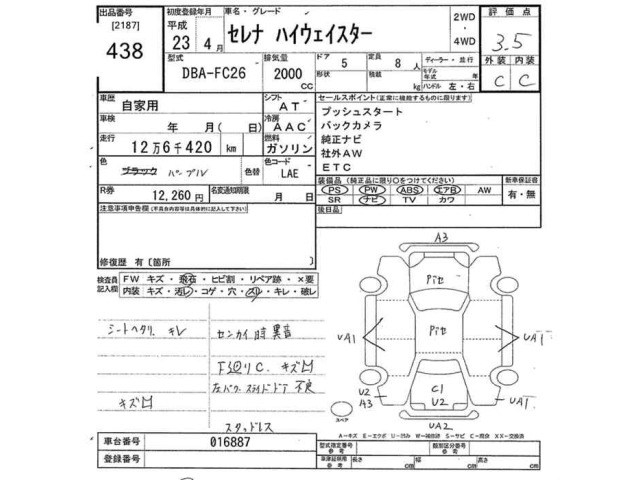 出品番号 [2187] 438
初度登録年月 平成 23 4月
車名・グレード セレナ ハイウェイスター
2WD ・ 4WD
評価点 3.5
型式 DBA-FC26
排気量 2000 CC
ドア 形状 5
定員 積載 8人 kg
ディーラー・並行
モデル年式 年
ハンドル 左・右
外装 内装
C C
車歴 自家用
シフト AT
車検 年 月(日)
冷房 AAC
走行 12万6千420 km
燃料 ガソリン
色 ブラック パープル
色替
色コード LAE
R券 12,260円
名変通知期限 月 日
セールスポイント(正常に機能するものに限ります)
プッシュスタート
バックカメラ
純正ナビ
社外AW
ETC
装備品(純正品に限り○をつけてください)
PS PW ABS エアB AW
SR ナビ TV カワ
新車保証書 有・無
後日品
注意事項申告欄
修復歴 有〔箇所 〕
検査員記入欄
FW キズ・飛石・ヒビ割・リペア跡・×要
内装 キズ・汚レ・コゲ・穴・スレ・キレ・破レ
シートヘタリ キレ
センカイ時異音
下廻りC、キズ凹
左パワースライドドア不良
キズ凹
スタッドレス
A3
Pｲｾ
UA1 Pｲｾ UA1
C1
U2
U2
A3
UA1
UA2
スペア
A－キズ E－エクボ U－凹み W－補修跡 S－サビ C－腐食 XX－交換済
車台番号 016887
登録番号
型式指定番号 参考
類別区分番号 参考
車庫証明用 参考 長さ cm 幅 cm 高さ cm